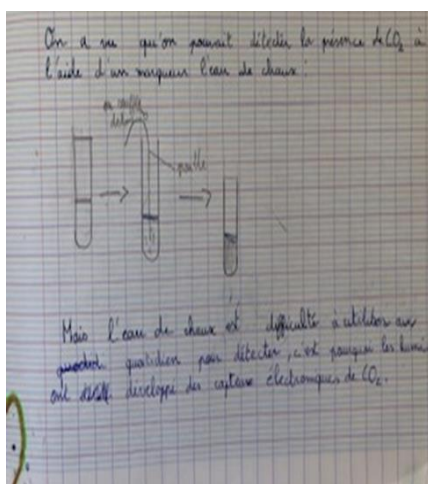 On a vu qu'on pouvait détecter la présence de CO2 à
l'aide d'un marqueur l'eau de chaux :
on souffle
dedans
paille
Mais l'eau de chaux est difficulté à utiliser au
quotidien pour détecter, c'est pourquoi les humains
ont développé des capteurs électroniques de CO2.